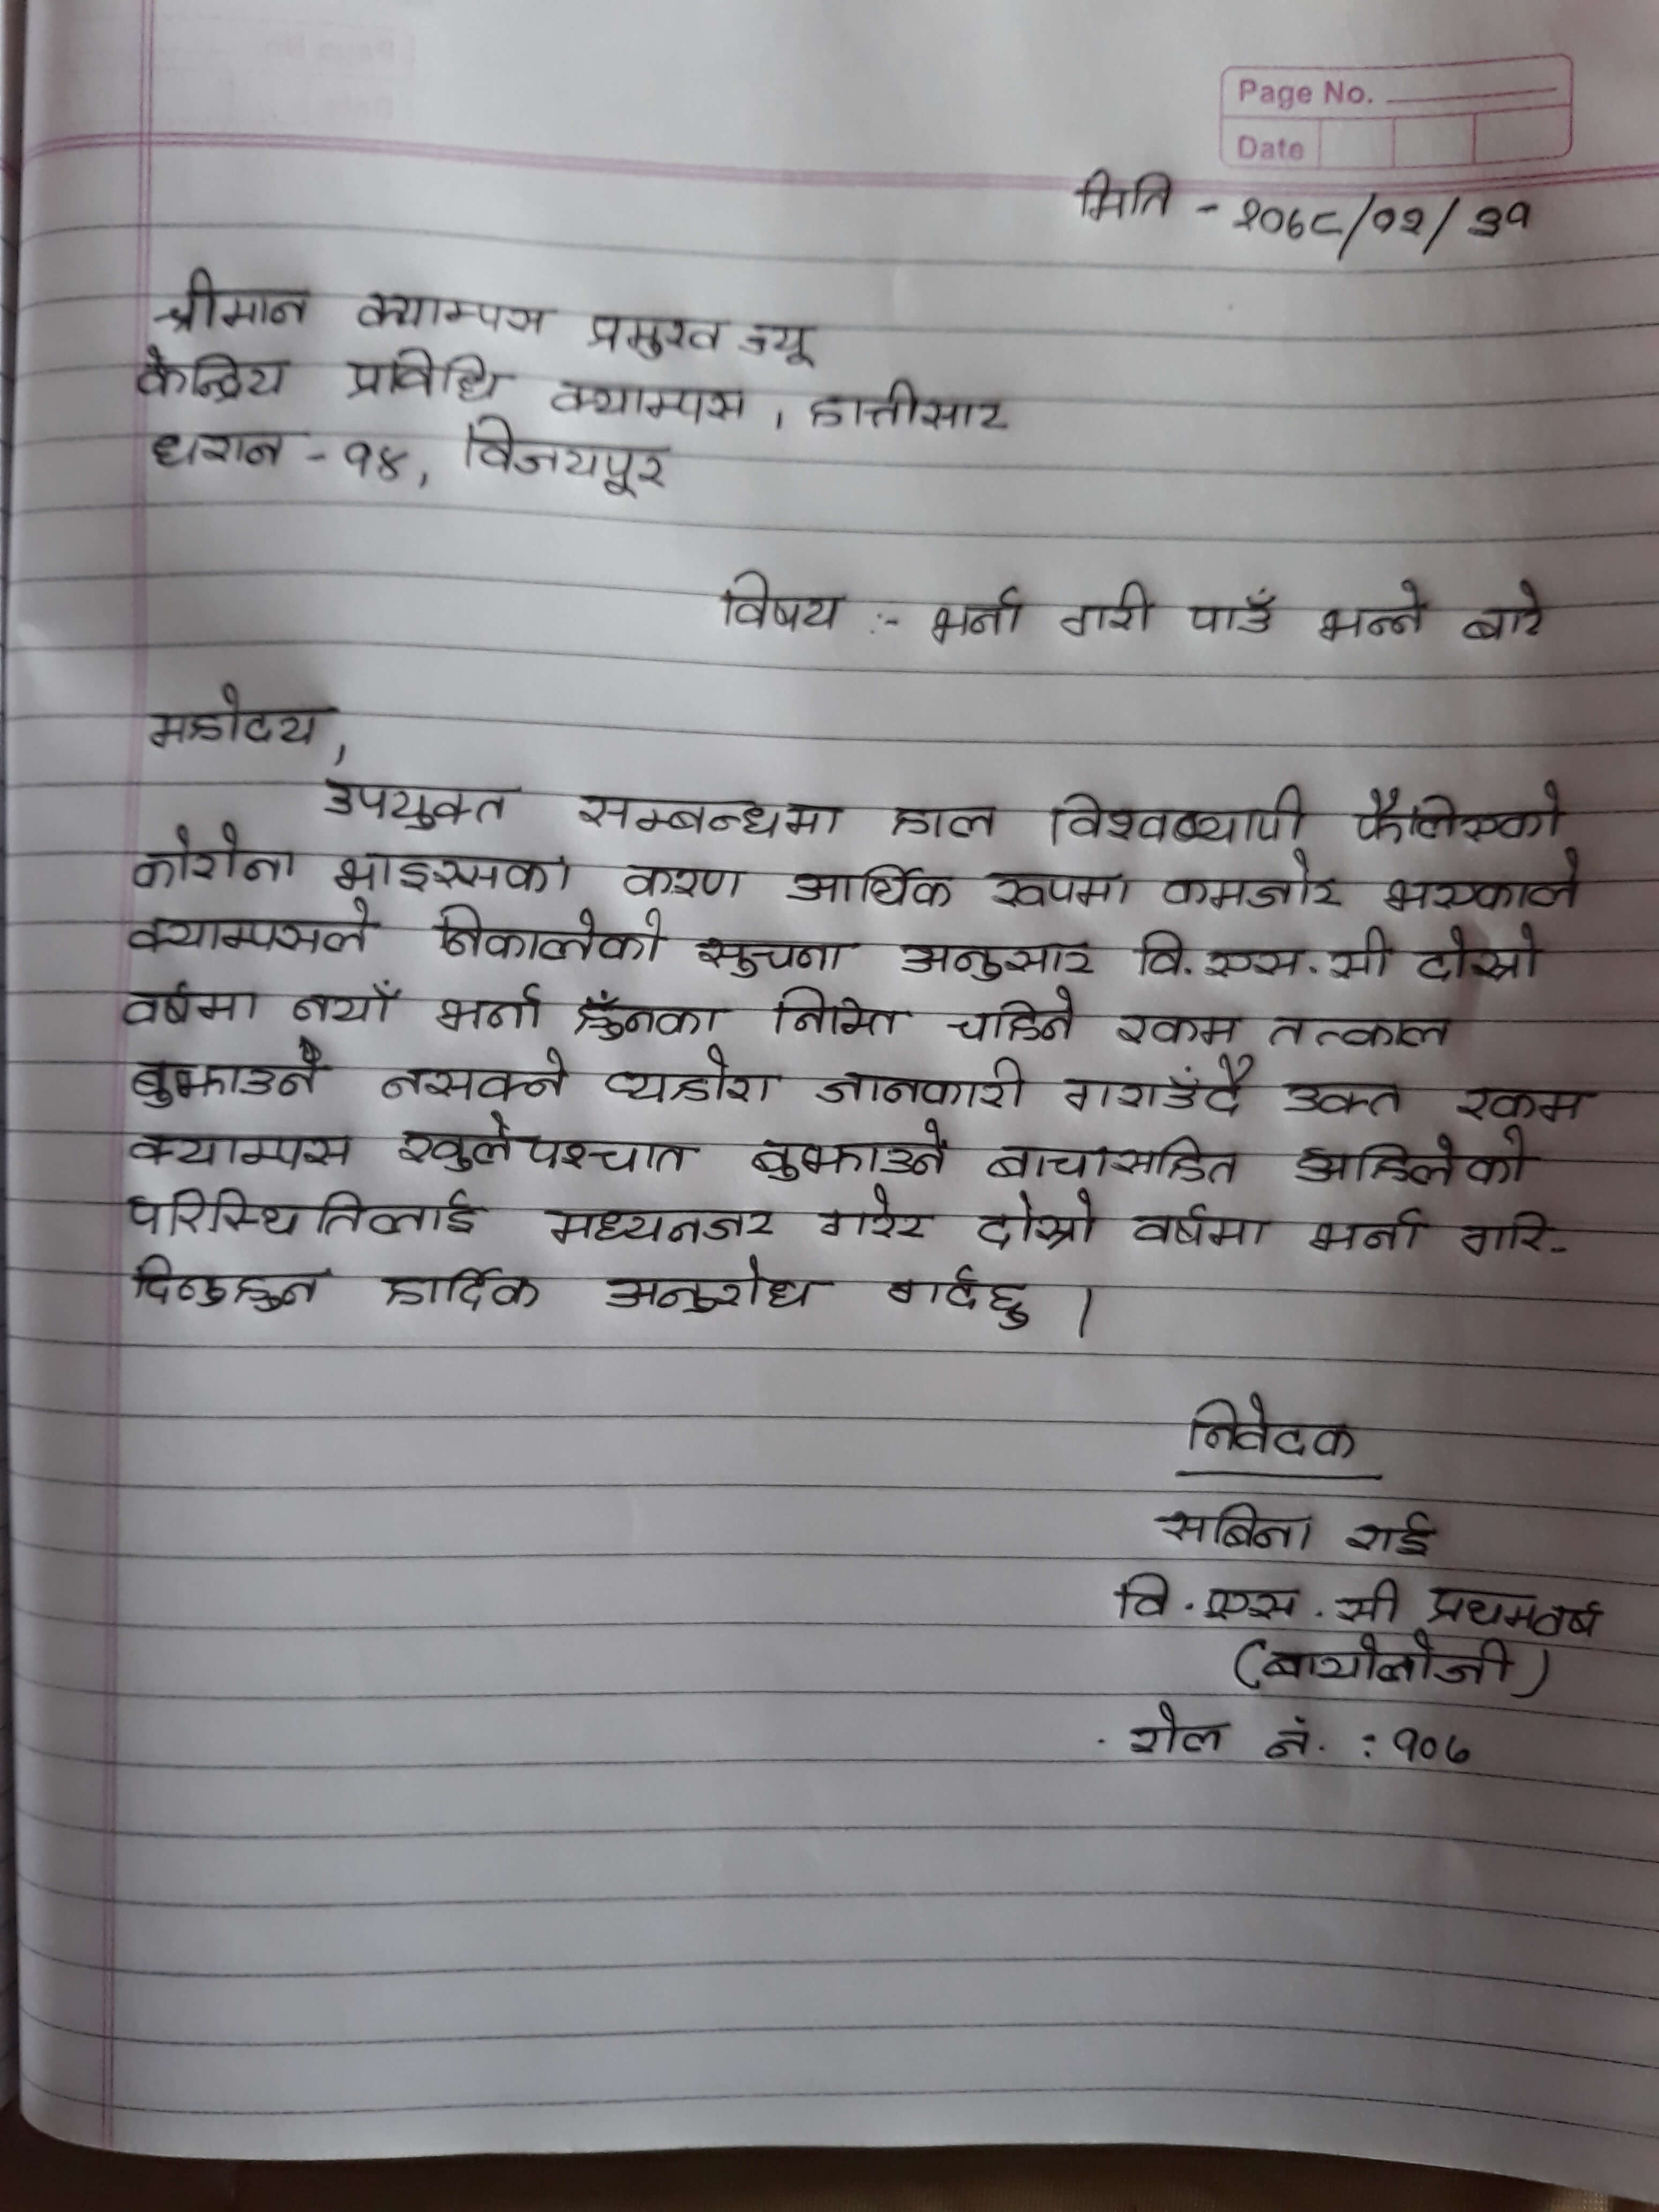 Page No.
Date
मिति - २०७८/०२/३१
श्रीमान क्याम्पस प्रमुख ज्यू
केन्द्रिय प्रविधि क्याम्पस, हात्तीसार
धरान - १४, विजयपूर
विषय :- भर्ना गरी पाउँ भन्ने बारे
महोदय,
उपयुक्त सम्बन्धमा हाल विश्वब्यापी फैलिएको
कोरोना भाइरसका करण आर्थिक रूपमा कमजोर भएकाले
क्याम्पसले निकालेको सुचना अनुसार वि.एस.सी दोस्रो
वर्षमा नयाँ भर्ना हुँनका निम्ति चहिने रकम तत्काल
बुझाउनै नसक्ने व्यहोरा जानकारी गराउँदै उक्त रकम
क्याम्पस खुलेपश्चात बुझाउने बाचासहित अहिलेको
परिस्थितिलाई मध्यनजर गरेर दोस्रो वर्षमा भर्ना गरि-
दिनुहुन हार्दिक अनुरोध गर्दछु ।
निवेदक
सबिना राई
वि.एस.सी प्रथमवर्ष
(बायोलोजी)
रोल नं. : १०७